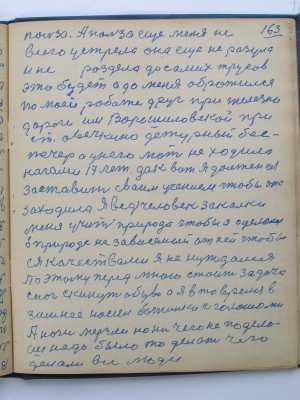 163
попза. А попза еще меня не
всего устрела она еще не разула
и не раздела до самих трусов
это будет а до меня оброжился
по моей работе друг при железно
дороги им Ворошиловской при
ст. овечкино дежурный бас-
нечер а у него мот не ходила
нагами 17 лет, дак вот я должен ея
заставить своим учением чтобы она
заходила Я ведь человек закалки
меня учит природа чтобы я сделался
в природе не зависемый от ней чтобы
я качествами Я не нуждался
Поэтому перед мною стоит задача
с ног скинуть обувь а я в то время в
зимнее носил ботинки с голошами
А ноги мерзли но ни чего не подела
иш надь было это делать чего
делали все люди